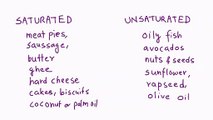 SATURATED
meat pies,
saussage,
butter
ghee
hard cheese
cakes, biscuits
coconut or palm oil
UNSATURATED
oily fish
avocados
nuts & seeds
sunflower,
rapseed,
olive oil